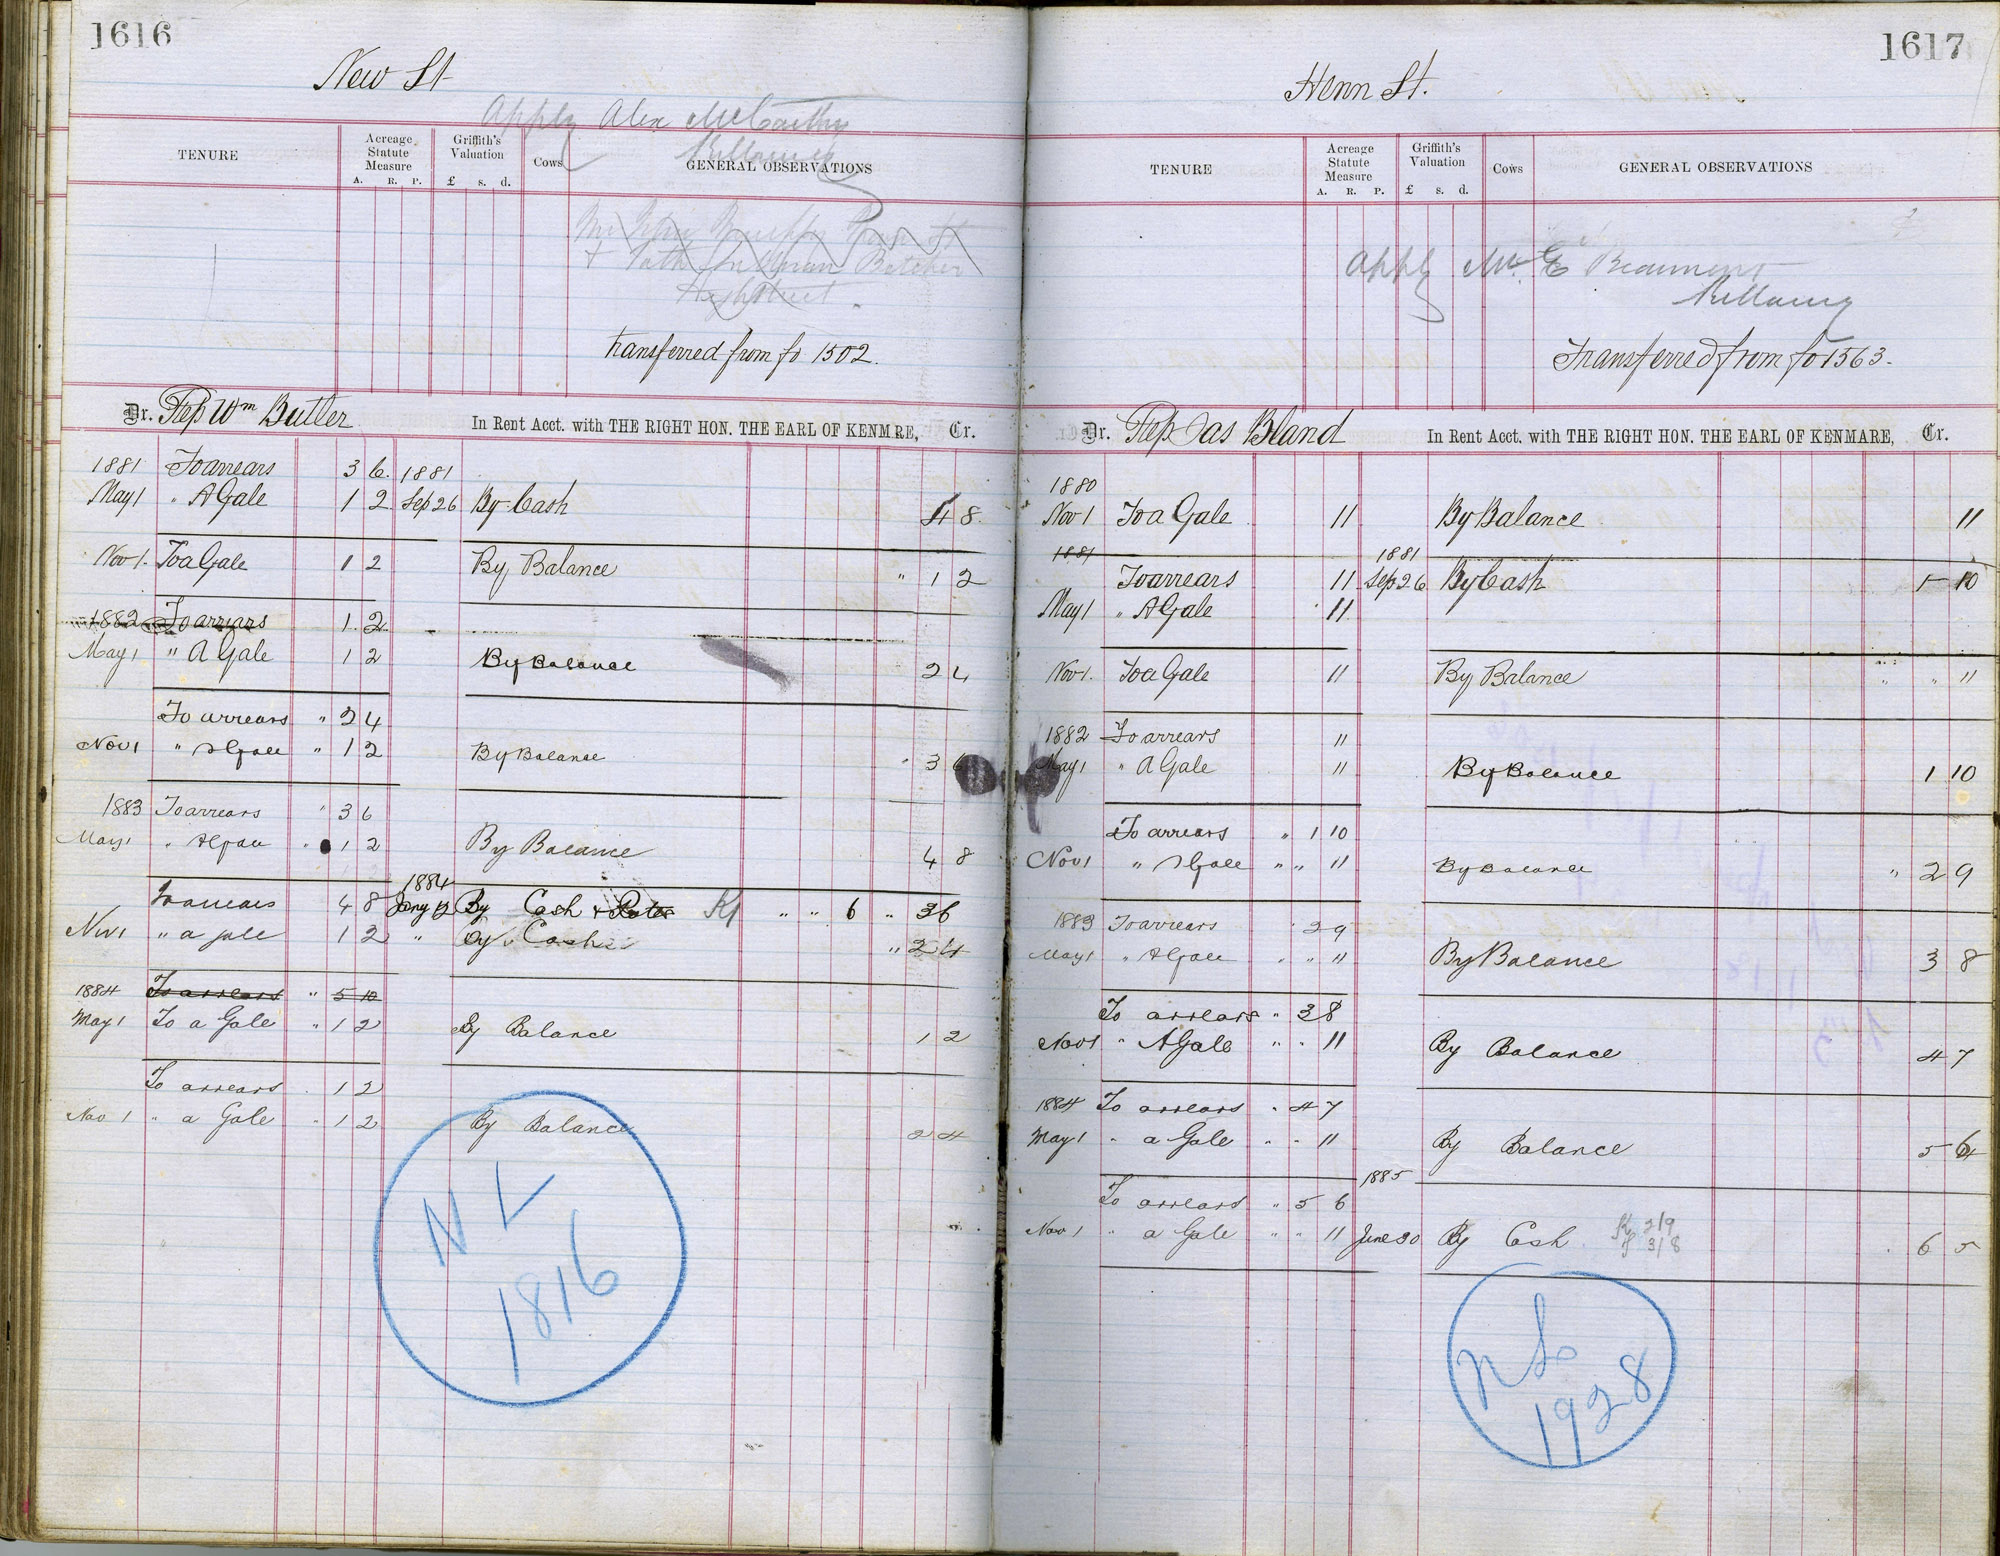 1616
New St
Apply Alex McCarthy
Killarney
TENURE
Acreage Statute Measure
A. R. P.
Griffith's Valuation
£ s. d.
Cows
GENERAL OBSERVATIONS
High Street
transferred from fo 1502.
Dr. Reps Wm Butler In Rent Acct. with THE RIGHT HON. THE EARL OF KENMRE, Cr.
1881 To arrears 3 6 1881
May 1 " A Gale 1 2 Sep 26 By Cash 4 8
Nov 1. To a Gale 1 2 By Balance " 1 2
1882 To arrears 1 2
May 1 " A Gale 1 2 By Balance 2 4
To arrears " 2 4
Nov 1 " A Gale " 1 2 By Balance " 3 6
1883 To arrears " 3 6
May 1 " A Gale " 1 2 By Balance 4 8
1884
To arrears 4 8 Jany 12 By Cash & Rates " " 6 " 3 6
Nov 1 " a gale 1 2 " By Cash " 2 4
1884 To arrears " 5 10
May 1 To a Gale " 1 2 By Balance 1 2
To arrears . 1 2
Nov 1 " a Gale " 1 2 By Balance 2 4
N L
1816
1617
Henn St.
TENURE
Acreage Statute Measure
A. R. P.
Griffith's Valuation
£ s. d.
Cows
GENERAL OBSERVATIONS
Apply Mr E Beaumont
Killarney
Transferred from fo 1563.
Dr. Reps Jas Bland In Rent Acct. with THE RIGHT HON. THE EARL OF KENMARE, Cr.
1880
Nov 1 To a Gale 11 By Balance 11
1881 1881
To arrears 11 Sep 26 By Cash 1 10
May 1 " A Gale 11
Nov 1. To a Gale 11 By Balance " " 11
1882 To arrears 11
May 1 " A Gale 11 By Balance 1 10
To arrears " 1 10
Nov 1 " A Gale " " 11 By Balance " 2 9
1883 To arrears 2 9
May 1 " A Gale " " 11 By Balance 3 8
To arrears " 3 8
Nov 1 " A Gale " " 11 By Balance 4 7
1884 To arrears " 4 7
May 1 " a Gale " " 11 By Balance 5 6
1885
To arrears " 5 6
Nov 1 " a Gale " " 11 June 30 By Cash 2/9 3/8 6 5
N L
1928